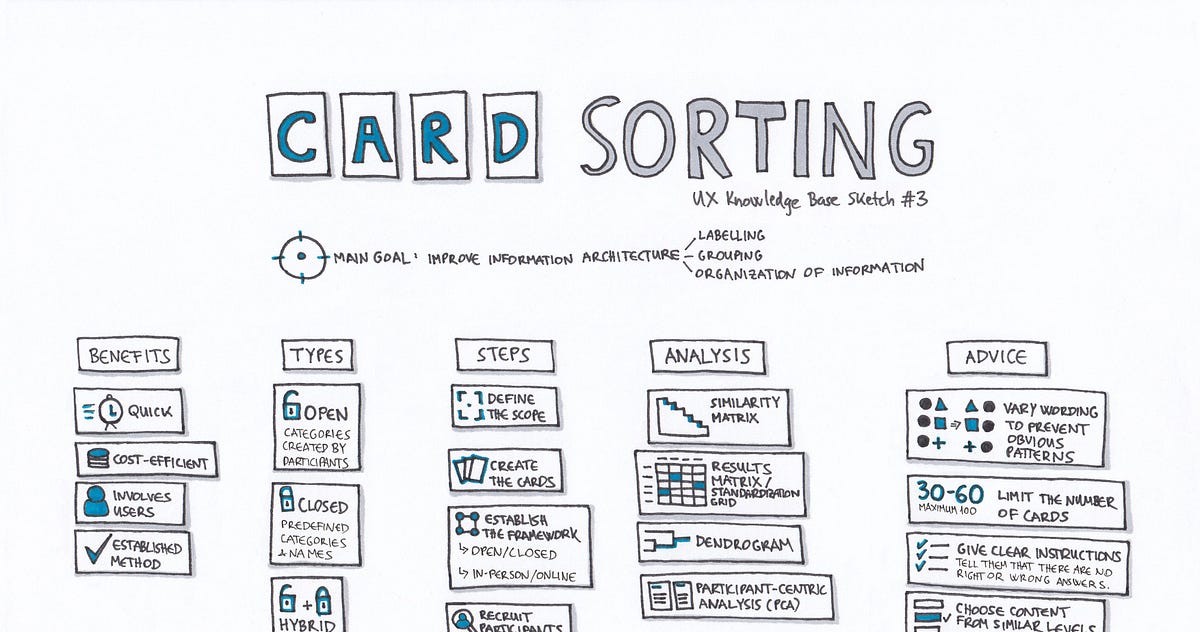 CARD SORTING
UX Knowledge Base Sketch #3
MAIN GOAL: IMPROVE INFORMATION ARCHITECTURE
LABELLING
GROUPING
ORGANIZATION OF INFORMATION
BENEFITS
QUICK
COST-EFFICIENT
INVOLVES
USERS
ESTABLISHED
METHOD
TYPES
OPEN
CATEGORIES
CREATED BY
PARTICIPANTS
CLOSED
PREDEFINED
CATEGORIES
+ NAMES
+
HYBRID
STEPS
DEFINE
THE SCOPE
CREATE
THE CARDS
ESTABLISH
THE FRAMEWORK
↳ OPEN/CLOSED
↳ IN-PERSON/ONLINE
RECRUIT
PARTICIPANTS
ANALYSIS
SIMILARITY
MATRIX
RESULTS
MATRIX/
STANDARDIZATION
GRID
DENDROGRAM
PARTICIPANT-CENTRIC
ANALYSIS (PCA)
ADVICE
VARY WORDING
TO PREVENT
OBVIOUS
PATTERNS
30-60
MAXIMUM 100
LIMIT THE NUMBER
OF CARDS
GIVE CLEAR INSTRUCTIONS
TELL THEM THAT THERE ARE NO
RIGHT OR WRONG ANSWERS.
CHOOSE CONTENT
FROM SIMILAR LEVELS